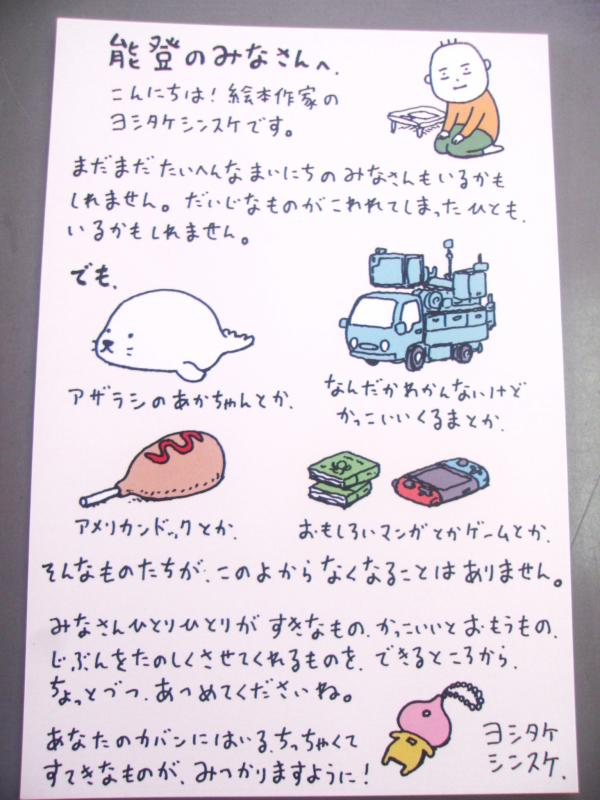 能登のみなさんへ.
こんにちは! 絵本作家の
ヨシタケシンスケです。
まだまだ たいへんな まいにちの みなさんもいるかも
しれません。だいじなものが こわれてしまったひとも,
いるかもしれません。
でも,
アザラシのあかちゃんとか.
なんだかわかんないけど
かっこいいくるまとか.
アメリカンドックとか.
おもしろいマンガとかゲームとか.
そんなものたちが, このよから なくなることは ありません。
みなさんひとりひとりが すきなもの, かっこいいと おもうもの,
じぶんをたのしくさせてくれるものを, できるところから,
ちょっとづつ, あつめてくださいね。
あなたのカバンにはいる, ちっちゃくて
すてきなものが, みつかりますように!
ヨシタケ
シンスケ.